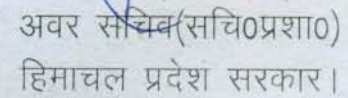 अवर सचिव(सचि0प्रशा0)
हिमाचल प्रदेश सरकार।